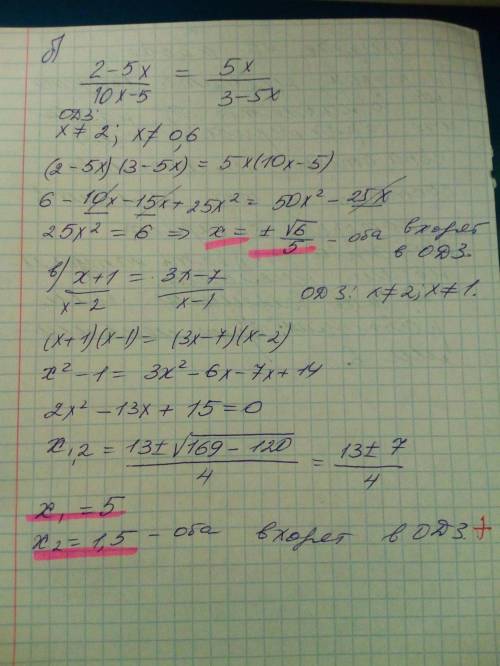 б)
2-5x / 10x-5 = 5x / 3-5x
ОДЗ:
x ≠ 2; x ≠ 0,6
(2-5x)(3-5x) = 5x(10x-5)
6 - 10x - 15x + 25x² = 50x² - 25x
25x² = 6 ⇒ x = ± √6 / 5 - оба входят
в ОДЗ.
в) x+1 / x-2 = 3x-7 / x-1 ОДЗ: x≠2; x≠1.
(x+1)(x-1) = (3x-7)(x-2)
x² - 1 = 3x² - 6x - 7x + 14
2x² - 13x + 15 = 0
x₁,₂ = 13 ± √169 - 120 / 4 = 13 ± 7 / 4
x₁ = 5
x₂ = 1,5 - оба входят в ОДЗ.